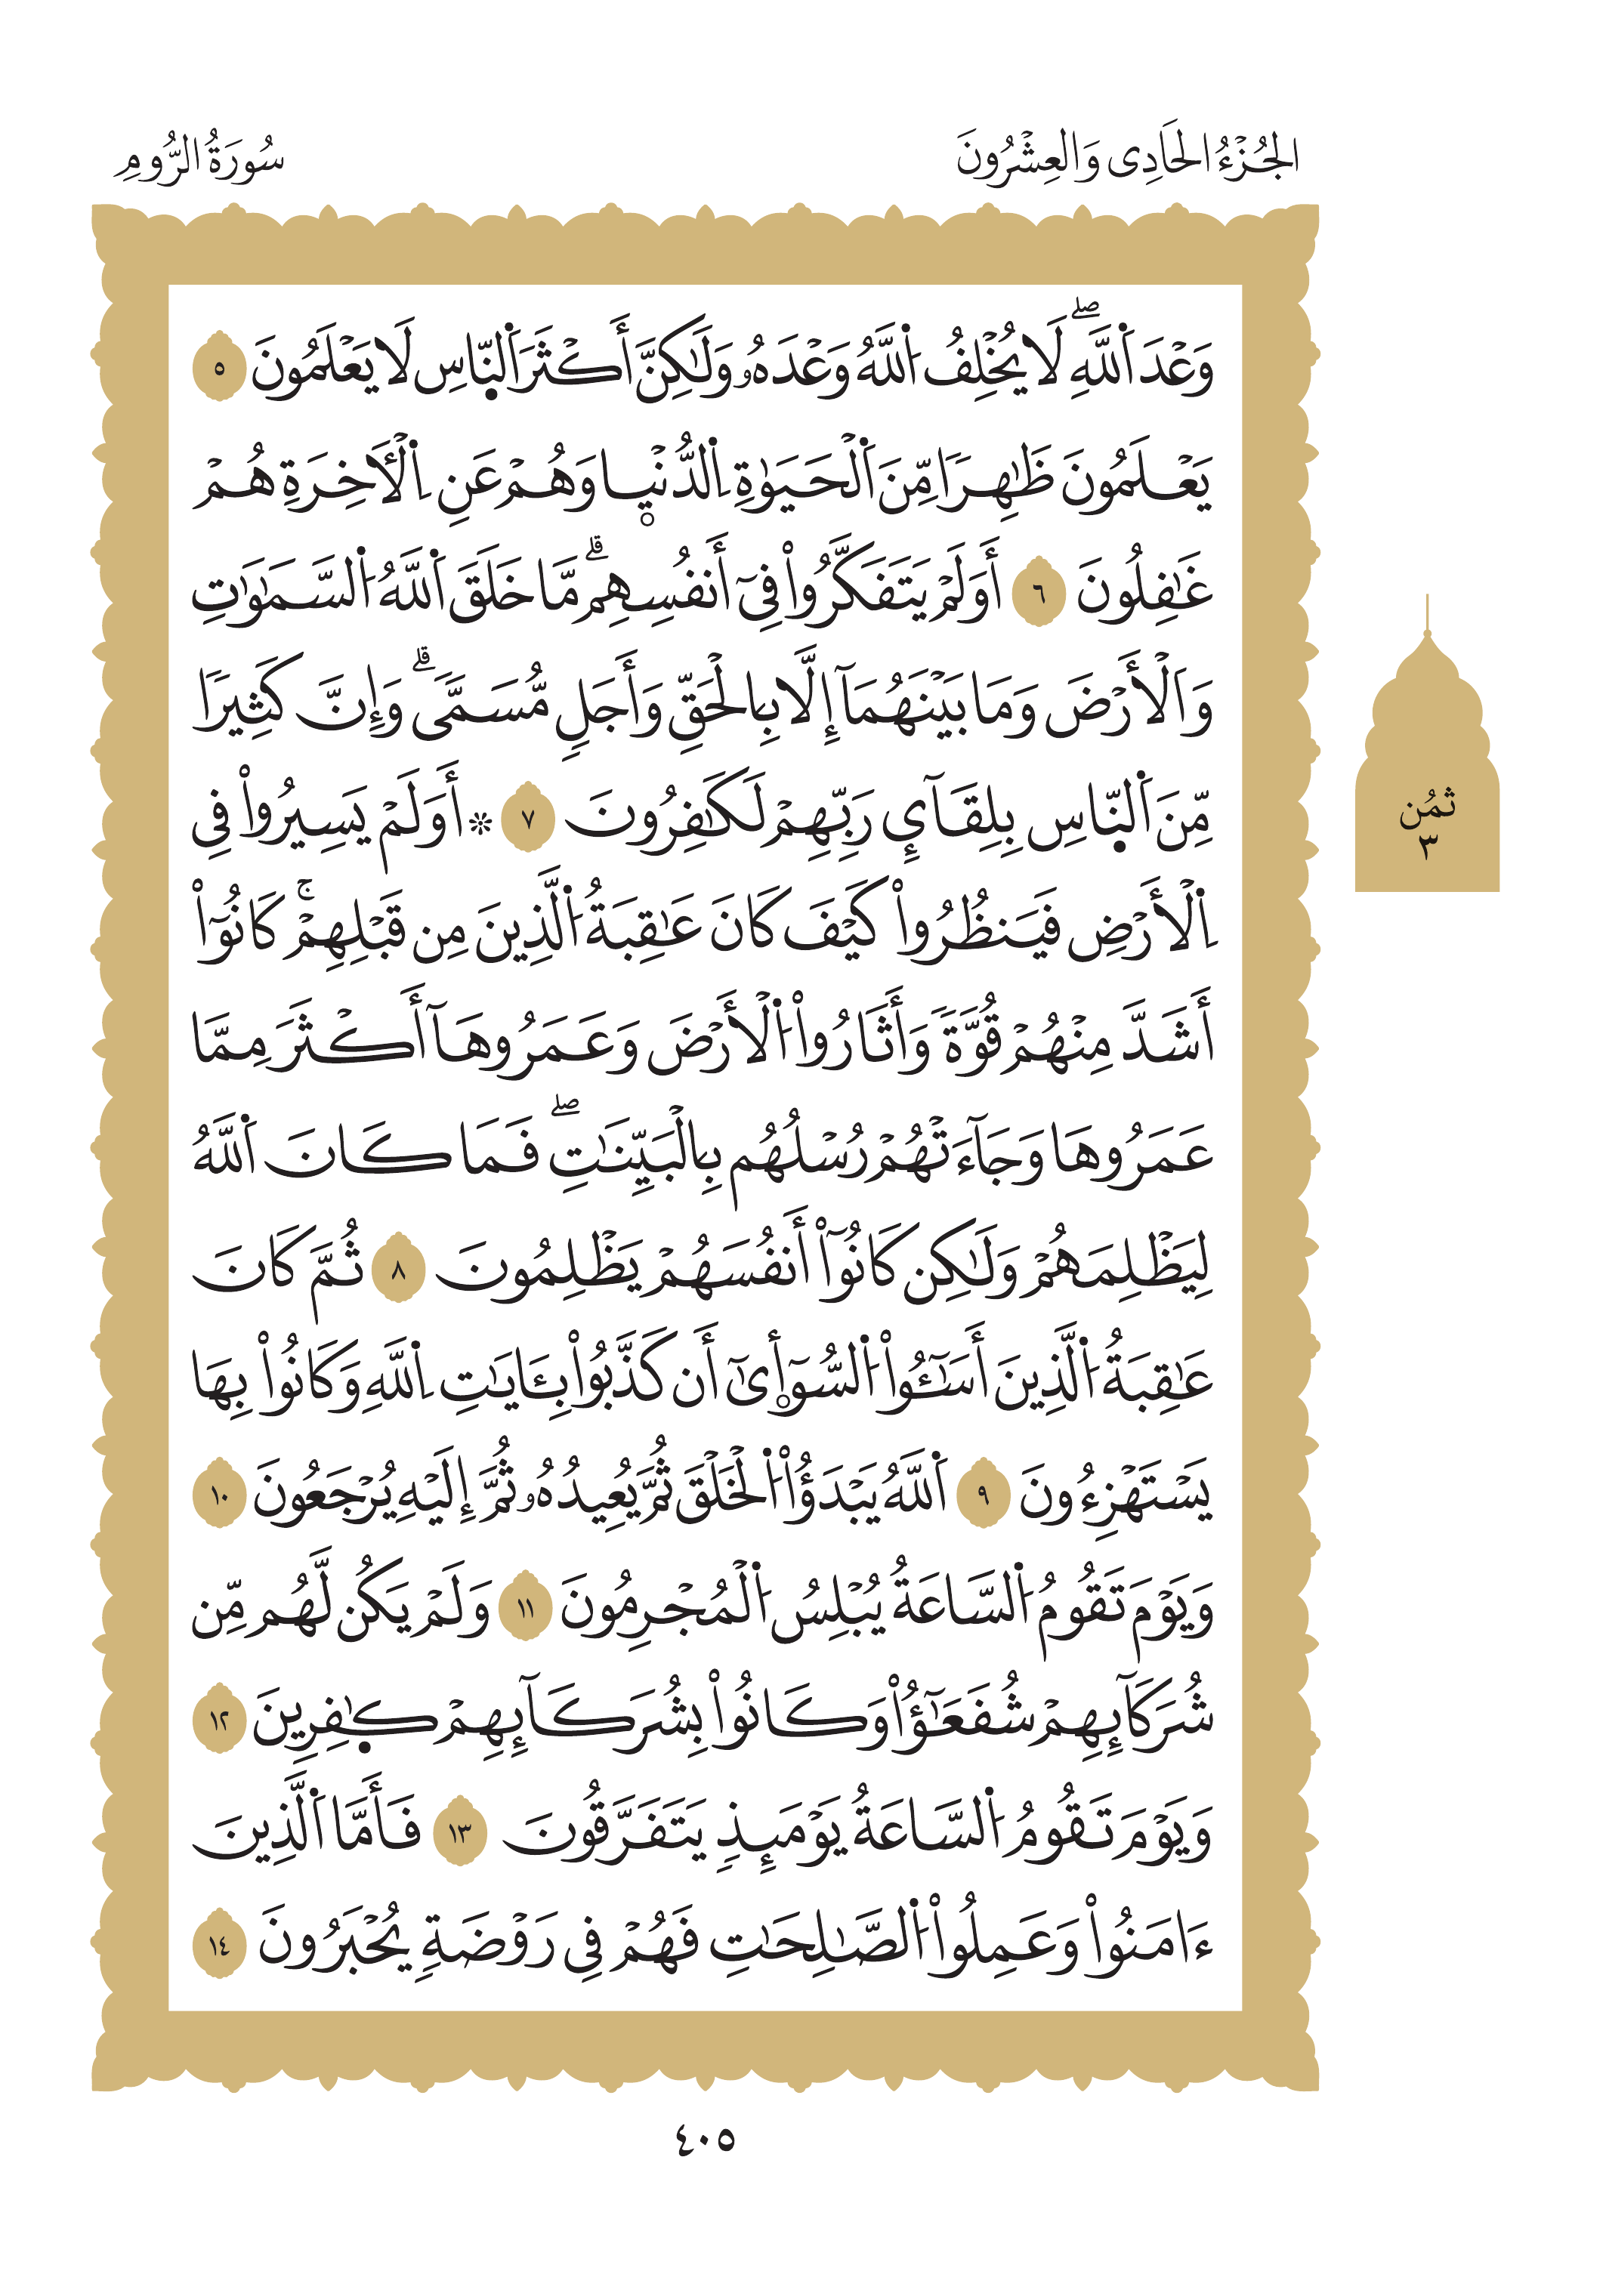 الجُزْءُ الحَادِى وَالعِشْرُونَ
سُورَةُ الرُّومِ
وَعْدَ اَ۬للَّهِۖ لَا يُخْلِفُ اُ۬للَّهُ وَعْدَهُۥ وَلَٰكِنَّ أَكْثَرَ اَ۬لنّ۪اسِ لَا يَعْلَمُونَ ٥
يَعْلَمُونَ ظَٰهِرٗا مِّنَ اَ۬لْحَيَوٰةِ اِ۬لدُّنْي۪ا وَهُمْ عَنِ اِ۬لْأَخِرَةِ هُمْ
غَٰفِلُونَ ٦ أَوَلَمْ يَتَفَكَّرُواْ فِىٓ أَنفُسِهِمۗ مَّا خَلَقَ اَ۬للَّهُ اُ۬لسَّمَٰوَٰتِ
وَاَ۬لْأَرْضَ وَمَا بَيْنَهُمَآ إِلَّا بِالْحَقِّ وَأَجَلٖ مُّسَمّٗىۗ وَإِنَّ كَثِيرٗا
مِّنَ اَ۬لنّ۪اسِ بِلِقَآيِٕ رَبِّهِمْ لَكَٰفِرُونَ ٧ ۞ أَوَلَمْ يَسِيرُواْ فِى
اِ۬لْأَرْضِ فَيَنظُرُواْ كَيْفَ كَانَ عَٰقِبَةُ اُ۬لَّذِينَ مِن قَبْلِهِمْۚ كَانُوٓاْ
أَشَدَّ مِنْهُمْ قُوَّةٗ وَأَثَارُواْ اُ۬لْأَرْضَ وَعَمَرُوهَآ أَكْثَرَ مِمَّا
عَمَرُوهَا وَجَآءَتْهُمْ رُسْلُهُم بِالْبَيِّنَٰتِۖ فَمَا كَانَ اَ۬للَّهُ
لِيَظْلِمَهُمْ وَلَٰكِن كَانُوٓاْ أَنفُسَهُمْ يَظْلِمُونَ ٨ ثُمَّ كَانَ
عَٰقِبَةُ اُ۬لَّذِينَ أَسَٰٓـُٔواْ اُ۬لسُّوٓأ۪ىٰٓ أَن كَذَّبُواْ بِـَٔايَٰتِ اِ۬للَّهِ وَكَانُواْ بِهَا
يَسْتَهْزِءُونَ ٩ اَ۬للَّهُ يَبْدَؤُاْ اُ۬لْخَلْقَ ثُمَّ يُعِيدُهُۥ ثُمَّ إِلَيْهِ يُرْجَعُونَ ١٠
وَيَوْمَ تَقُومُ اُ۬لسَّاعَةُ يُبْلِسُ اُ۬لْمُجْرِمُونَ ١١ وَلَمْ يَكُن لَّهُم مِّن
شُرَكَآئِهِمْ شُفَعَٰٓؤُاْ وَكَانُواْ بِشُرَكَآئِهِمْ كٰ۪فِرِينَ ١٢
وَيَوْمَ تَقُومُ اُ۬لسَّاعَةُ يَوْمَئِذٖ يَتَفَرَّقُونَ ١٣ فَأَمَّا اَ۬لَّذِينَ
ءَامَنُواْ وَعَمِلُواْ اُ۬لصَّٰلِحَٰتِ فَهُمْ فِى رَوْضَةٖ يُحْبَرُونَ ١٤
ثمُن
٣
٤٠٥